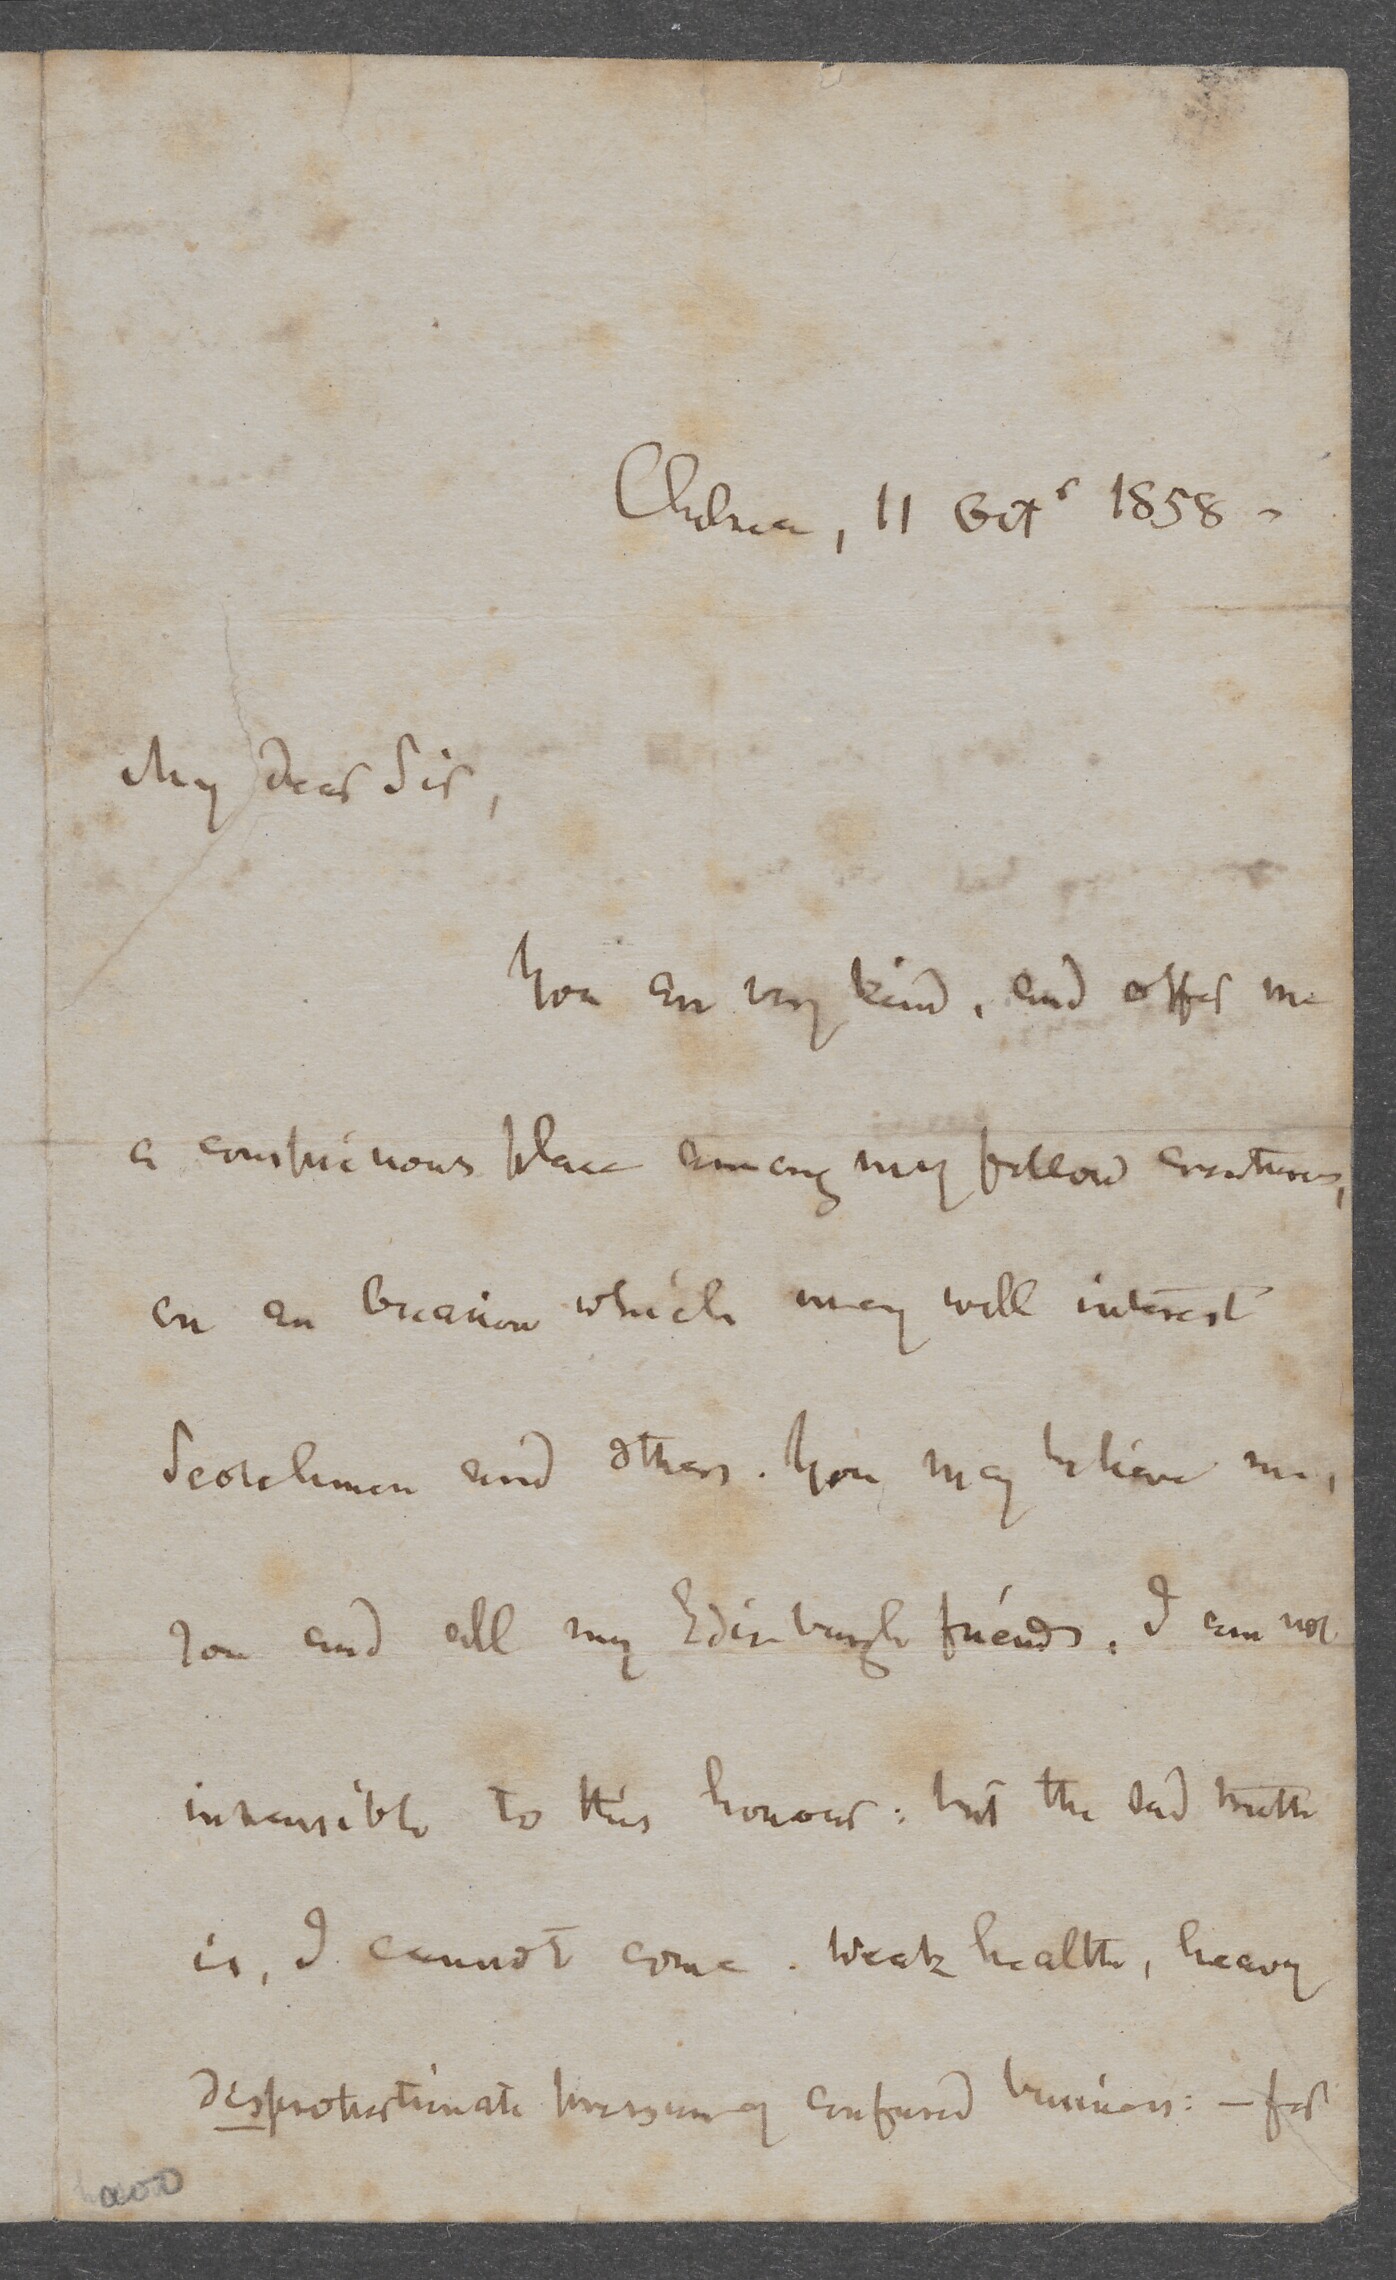 Chelsea, 11 Octr 1858 -
My dear Sir,
You are very kind, and offer me
a conspicuous place among my fellow creatures,
on an occasion which may well interest
Scotchmen and others. You may believe me,
you and all my Edinburgh friends, I am not
insensible to this honour: but the sad truth
is, I cannot come. Weak health, heavy
disproportionate pressure of confused business: — for